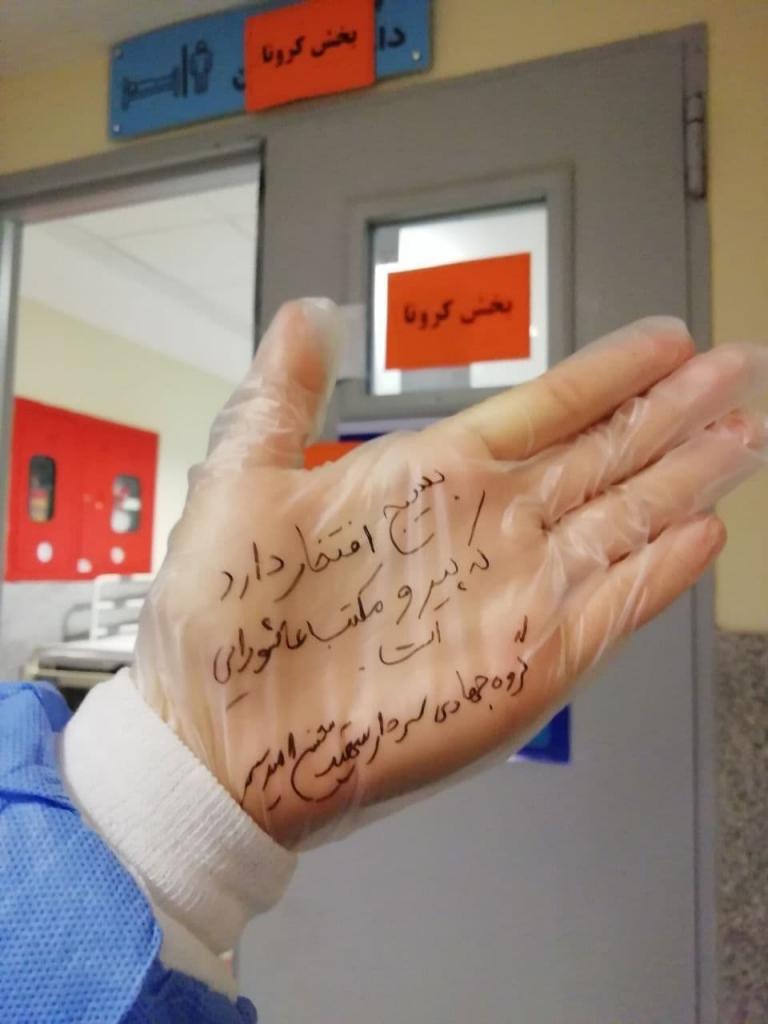 بخش کرونا
بخش کرونا
بسیج افتخار دارد
که پیرو مکتب عاشورایی
است.
گروه جهادی سردار شهید